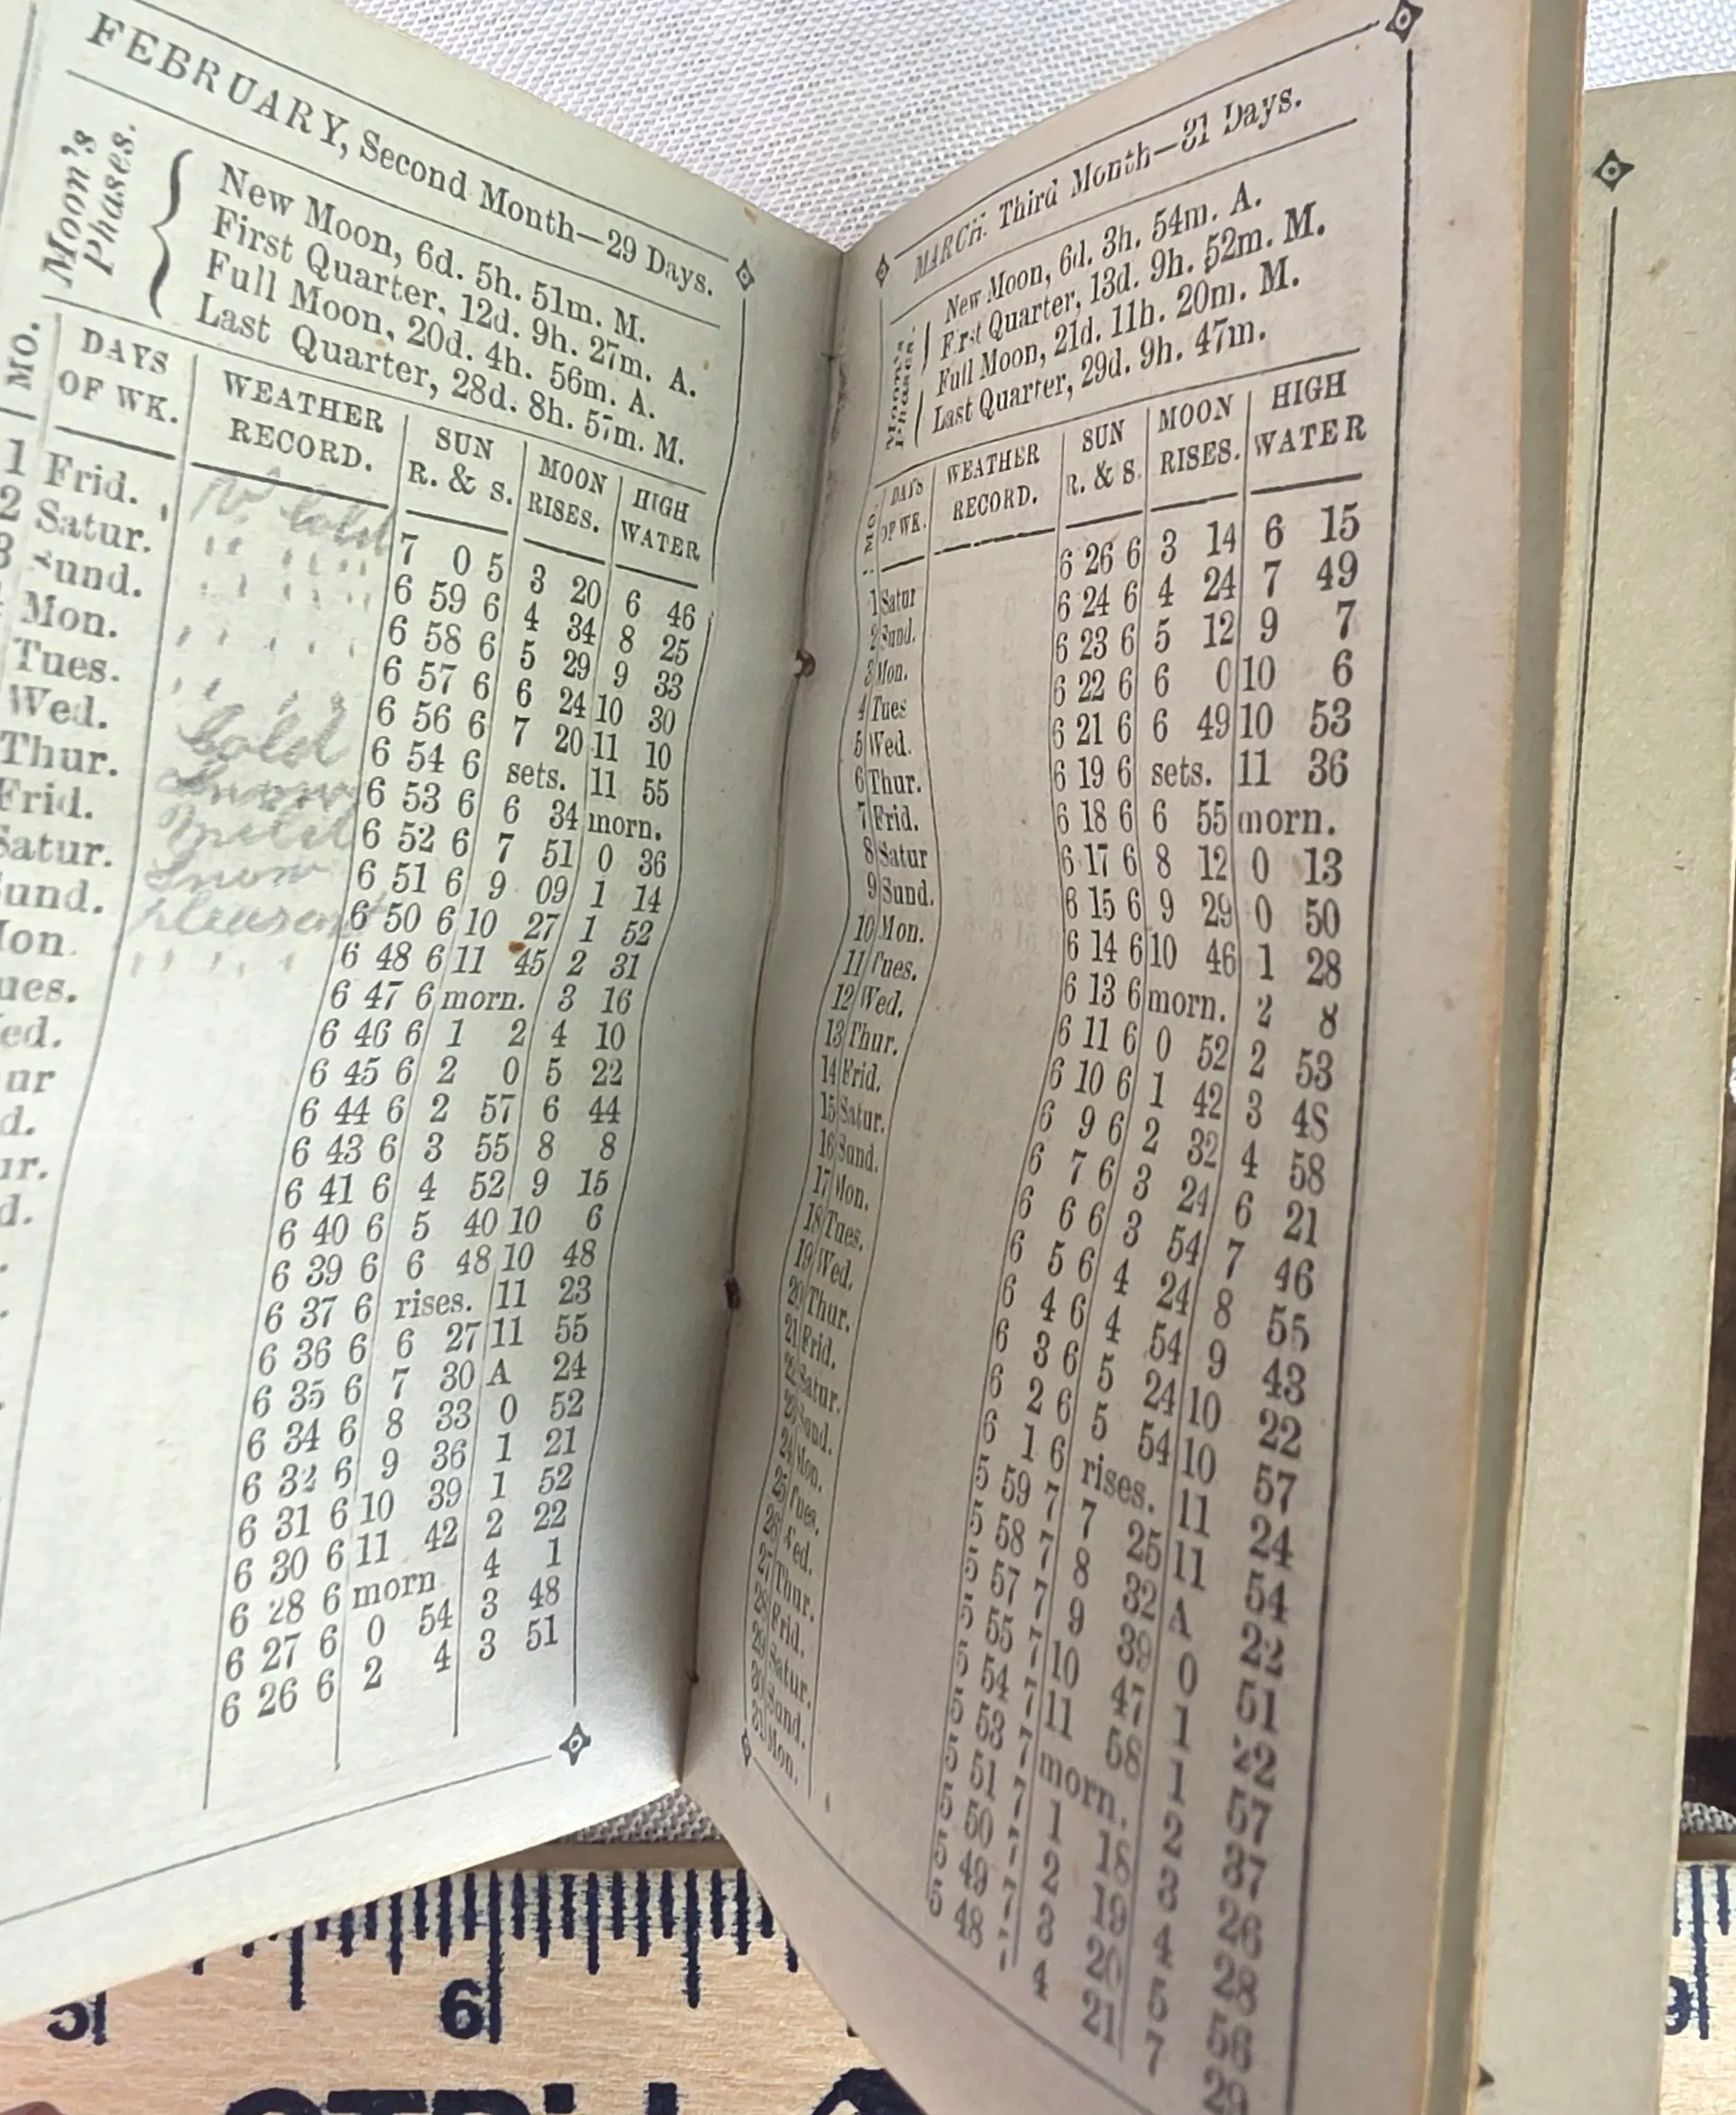 FEBRUARY, Second Month—29 Days.
Moon's Phases.
New Moon, 6d. 5h. 51m. M.
First Quarter, 12d. 9h. 27m. A.
Full Moon, 20d. 4h. 56m. A.
Last Quarter, 28d. 8h. 57m. M.
MO. DAYS OF WK. WEATHER RECORD. SUN R. & S. MOON RISES. HIGH WATER
1 Frid. Cold 7 0 5 3 20 6 46
2 Satur. " " " " 6 59 6 4 34 8 25
3 Sund. " " " " 6 58 6 5 29 9 33
Mon. " " " " 6 57 6 6 24 10 30
Tues. " " " " 6 56 6 7 20 11 10
Wed. Cold 6 54 6 sets. 11 55
Thur. Snow 6 53 6 6 34 morn.
Frid. Mild 6 52 6 7 51 0 36
Satur. Snow 6 51 6 9 09 1 14
und. pleasent 6 50 6 10 27 1 52
on. " " " " 6 48 6 11 45 2 31
ues. 6 47 6 morn. 3 16
ed. 6 46 6 1 2 4 10
ur 6 45 6 2 0 5 22
d. 6 44 6 2 57 6 44
ur. 6 43 6 3 55 8 8
d. 6 41 6 4 52 9 15
6 40 6 5 40 10 6
6 39 6 6 48 10 48
6 37 6 rises. 11 23
6 36 6 6 27 11 55
6 35 6 7 30 A 24
6 34 6 8 33 0 52
6 32 6 9 36 1 21
6 31 6 10 39 1 52
6 30 6 11 42 2 22
6 28 6 morn 4 1
6 27 6 0 54 3 48
6 26 6 2 4 3 51
MARCH. Third Month—31 Days.
Moon's Phases.
New Moon, 6d. 3h. 54m. A.
First Quarter, 13d. 9h. 52m. M.
Full Moon, 21d. 11h. 20m. M.
Last Quarter, 29d. 9h. 47m.
MO. DAYS OF WK. WEATHER RECORD. SUN R. & S. MOON RISES. HIGH WATER
1 Satur 6 26 6 3 14 6 15
2 Sund. 6 24 6 4 24 7 49
3 Mon. 6 23 6 5 12 9 7
4 Tues 6 22 6 6 0 10 6
5 Wed. 6 21 6 6 49 10 53
6 Thur. 6 19 6 sets. 11 36
7 Frid. 6 18 6 6 55 morn.
8 Satur 6 17 6 8 12 0 13
9 Sund. 6 15 6 9 29 0 50
10 Mon. 6 14 6 10 46 1 28
11 Tues. 6 13 6 morn. 2 8
12 Wed. 6 11 6 0 52 2 53
13 Thur. 6 10 6 1 42 3 48
14 Frid. 6 9 6 2 32 4 58
15 Satur. 6 7 6 3 24 6 21
16 Sund. 6 6 6 3 54 7 46
17 Mon. 6 5 6 4 24 8 55
18 Tues. 6 4 6 4 54 9 43
19 Wed. 6 3 6 5 24 10 22
20 Thur. 6 2 6 5 54 10 57
21 Frid. 6 1 6 rises. 11 24
22 Satur. 5 59 7 7 25 11 54
23 Sund. 5 58 7 8 32 A 22
24 Mon. 5 57 7 9 39 0 51
25 Tues. 5 55 7 10 47 1 22
26 Wed. 5 54 7 11 58 1 57
27 Thur. 5 53 7 morn. 2 37
28 Frid. 5 51 7 1 18 3 26
29 Satur. 5 50 7 2 19 4 28
30 Sund. 5 49 7 3 20 5 56
31 Mon. 5 48 7 4 21 7 29
5 6